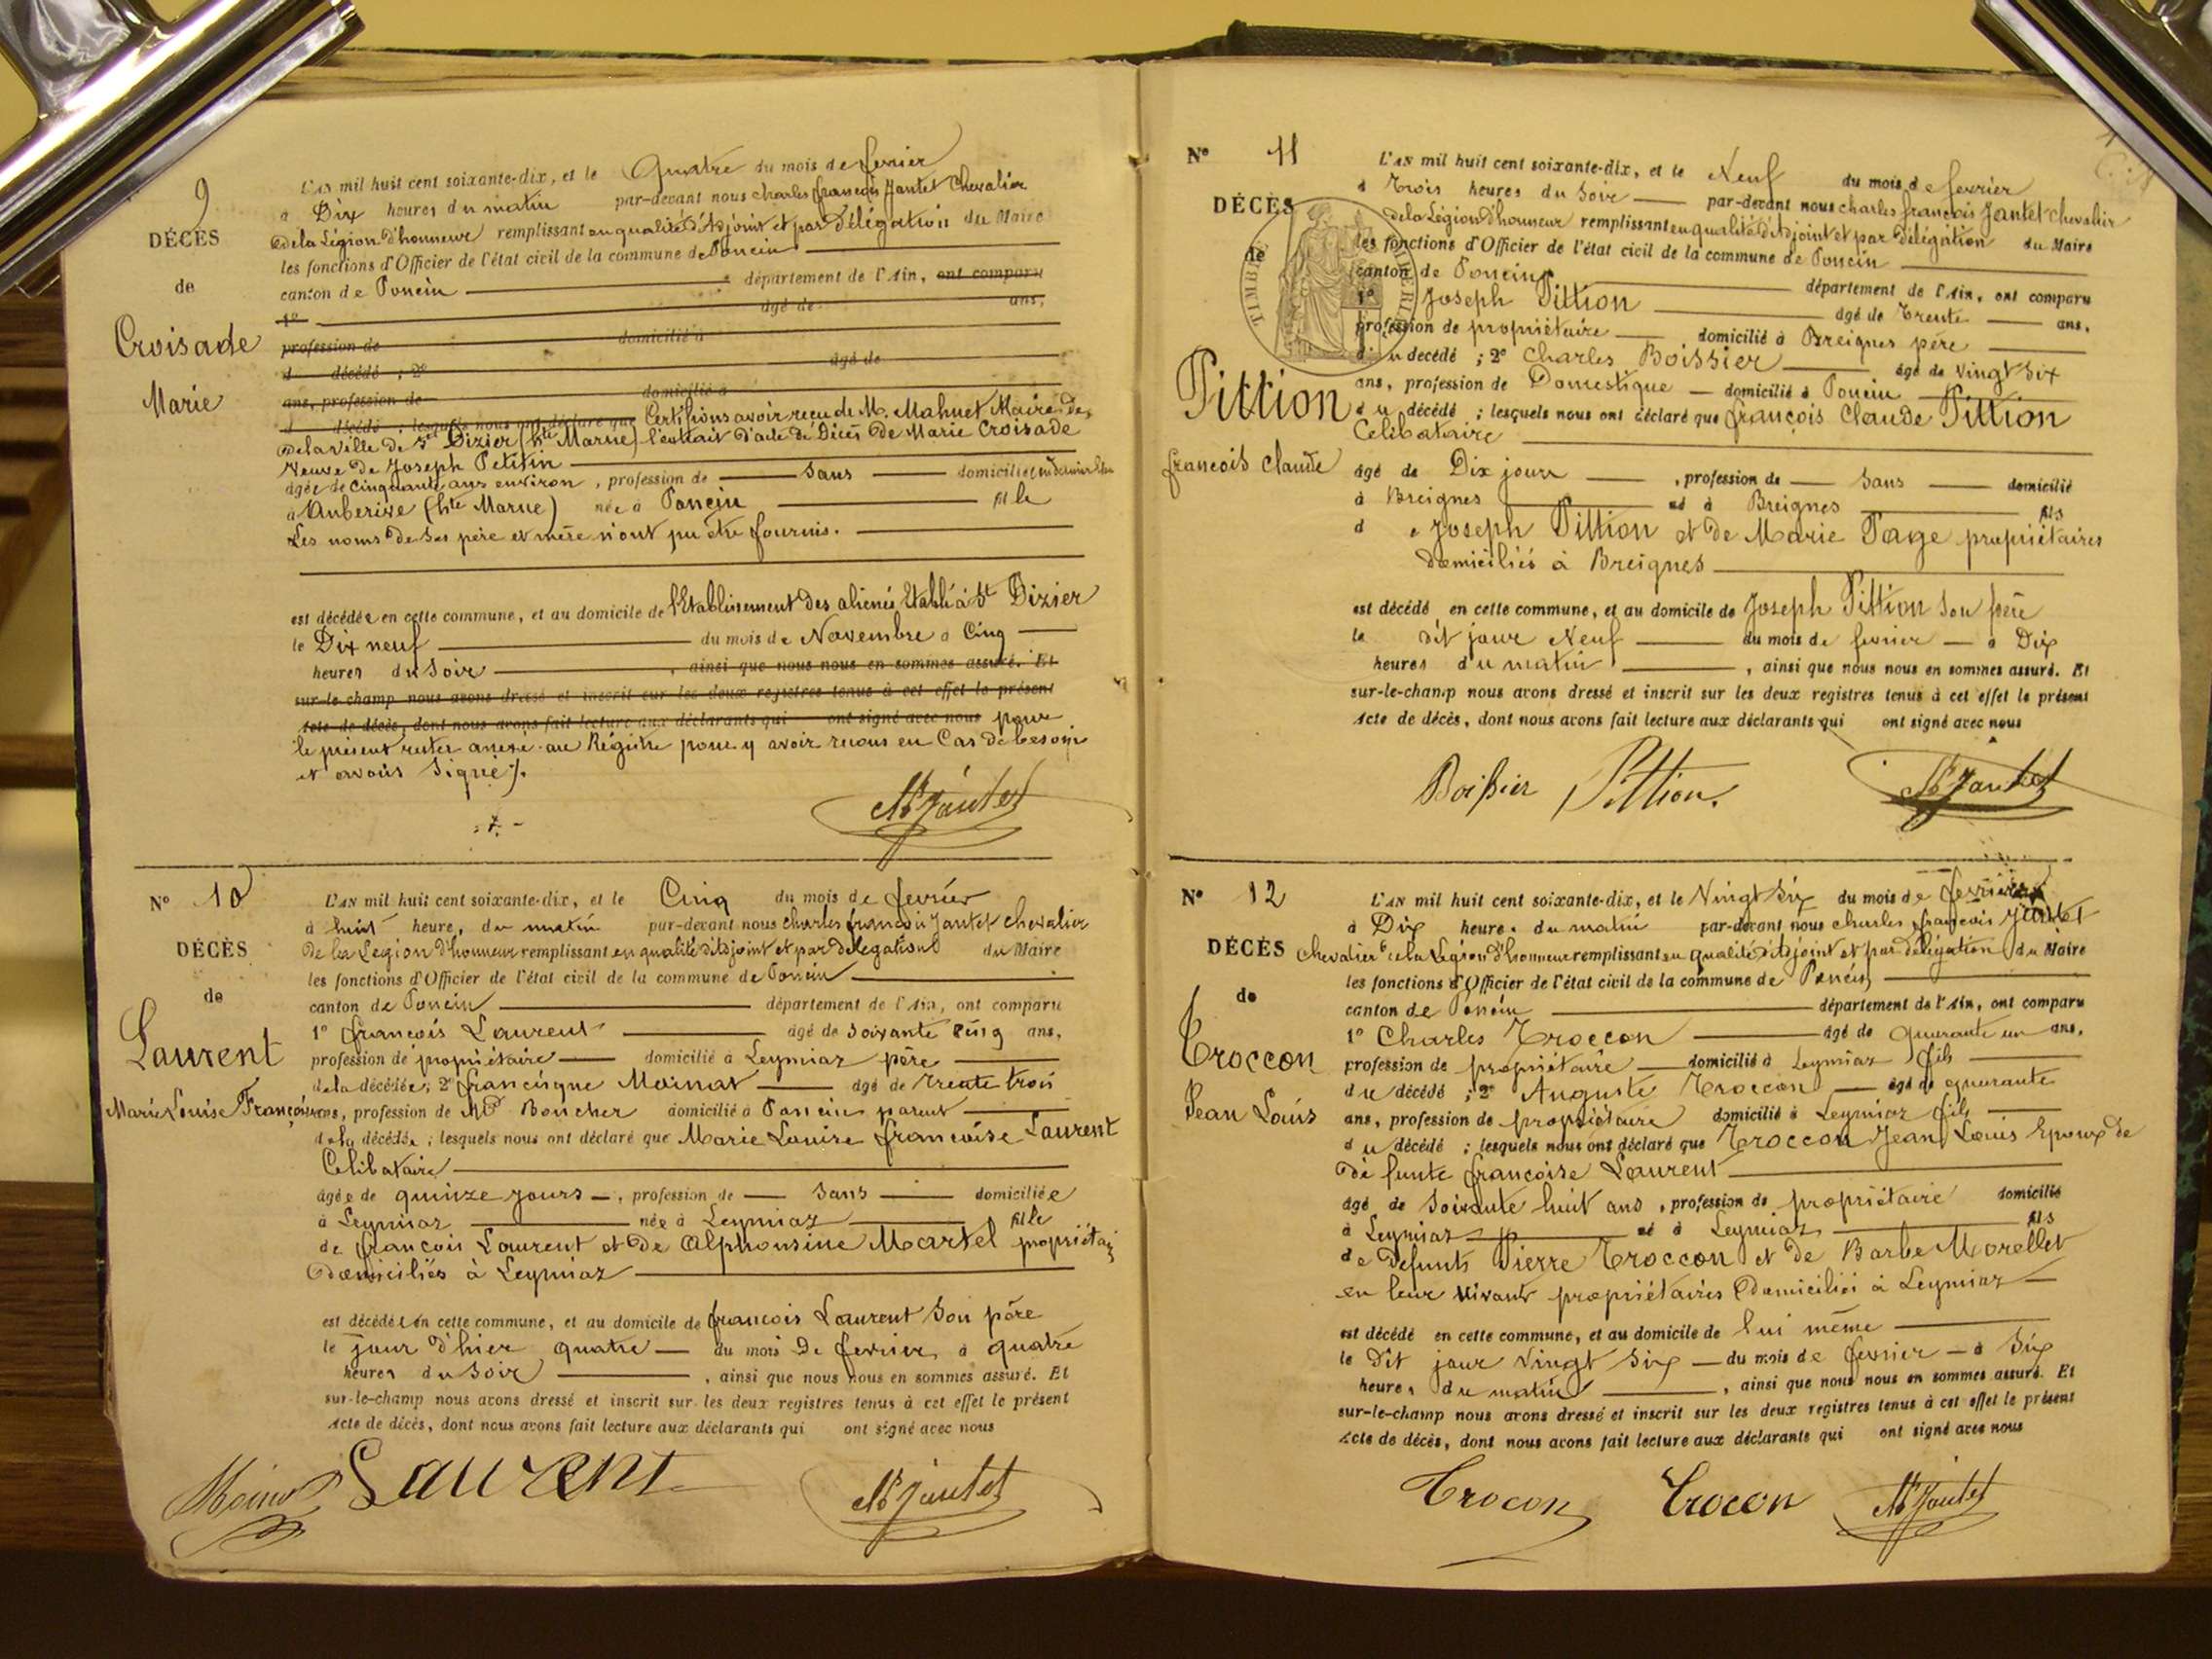 9
DÉCÈS
de
Croisade
Marie
L'AN mil huit cent soixante-dix, et le Quatre du mois de fevrier
à Dix heures du matin par-devant nous Charles françois Jantet Chevalier
dela Légion d'honneur remplissant en qualité d'Adjoint et par délégation du Maire
les fonctions d'Officier de l'état civil de la commune de Poncin
canton de Poncin département de l'Ain, ont comparu
1° âgé de ans,
profession de domicilié à
d décédé ; 2° âgé de
ans, profession de domicilié à
d décédé ; lesquels nous ont déclaré que Certifions avoir reçu de M. Mahuet Maire de
dela ville de St Dizier (hte Marne) l'extrait d'acte de Décès de Marie Croisade
Veuve de Joseph Petitin
âgée de Cinquante ans environ, profession de Sans domiciliée
à Auberive (hte Marne) née à Poncin fille
Les noms de Ses père et mère n'ont pu être fournis.
est décédée en cette commune, et au domicile de l'Etablissement des aliénés Etabli à St Dizier
le Dix neuf du mois de Novembre à Cinq
heures du Soir, ainsi que nous nous en sommes assuré. Et
sur-le-champ nous avons dressé et inscrit sur les deux registres tenus à cet effet le présent
Acte de décès, dont nous avons fait lecture aux déclarants qui ont signé avec nous pour
le présent rester anexé au Régistre pour y avoir recours en Cas de besoin
et avons Signé.
Jantet
N° 10
DÉCÈS
de
Laurent
Marie Louise Françoise
L'AN mil huit cent soixante-dix, et le Cinq du mois de fevrier
à huit heures du matin par-devant nous Charles françois Jantet Chevalier
De la Légion d'honneur remplissant en qualité d'Adjoint et par délégation du Maire
les fonctions d'Officier de l'état civil de la commune de Poncin
canton de Poncin département de l'Ain, ont comparu
1° françois Laurent âgé de Soixante Cinq ans,
profession de propriétaire domicilié à Leymiaz père
dela décédée; 2° francisque Moinat âgé de trente trois
ans, profession de Md Boucher domicilié à Poncin parent
dela décédée; lesquels nous ont déclaré que Marie Louise françoise Laurent
Celibataire
âgée de quinze jours, profession de Sans domiciliée
à Leymiaz née à Leymiaz fille
de françois Laurent et de Alphonsine Martel propriétai
Domiciliés à Leymiaz
est décédée en cette commune, et au domicile de françois Laurent Son père
le jour d'hier quatre du mois De fevrier à quatre
heures du Soir, ainsi que nous nous en sommes assuré. Et
sur-le-champ nous avons dressé et inscrit sur les deux registres tenus à cet effet le présent
Acte de décès, dont nous avons fait lecture aux déclarants qui ont signé avec nous
Moinat Laurent Jantet
N° 11
DÉCÈS
de
Pittion
françois Claude
L'AN mil huit cent soixante-dix, et le Neuf du mois de fevrier
à Trois heures du Soir par-devant nous Charles françois Jantet Chevalier
dela Légion d'honneur remplissant en qualité d'Adjoint et par délégation du Maire
les fonctions d'Officier de l'état civil de la commune de Poncin
canton de Poncin département de l'Ain, ont comparu
1° Joseph Pittion âgé de Trente ans,
profession de propriétaire domicilié à Breignes père
du décédé ; 2° Charles Boissier âgé de Vingt Six
ans, profession de Domestique domicilié à Poncin
du décédé ; lesquels nous ont déclaré que françois Claude Pittion
Celibataire
âgé de Dix jours, profession de Sans domicilié
à Breignes né à Breignes fils
de Joseph Pittion et de Marie Page propriétaires
domiciliés à Breignes
est décédé en cette commune, et au domicile de Joseph Pittion Son père
le dit jour Neuf du mois de fevrier à Dix
heures du matin, ainsi que nous nous en sommes assuré. Et
sur-le-champ nous avons dressé et inscrit sur les deux registres tenus à cet effet le présent
Acte de décès, dont nous avons fait lecture aux déclarants qui ont signé avec nous
Boissier Pittion. Jantet
N° 12
DÉCÈS
de
Troccon
Jean Louis
L'AN mil huit cent soixante-dix, et le Vingt Six du mois de fevrier
à Dix heures du matin par-devant nous Charles françois Jantet
Chevalier dela Légion d'honneur remplissant en qualité d'Adjoint et par délégation du Maire
les fonctions d'Officier de l'état civil de la commune de Poncin
canton de Poncin département de l'Ain, ont comparu
1° Charles Troccon âgé de quarante un ans,
profession de propriétaire domicilié à Leymiaz fils
du décédé ; 2° Auguste Troccon âgé de quarante
ans, profession de propriétaire domicilié à Leymiaz fils
du décédé ; lesquels nous ont déclaré que Troccon Jean Louis Epoux de
défunte françoise Laurent
âgé de Soixante huit ans, profession de propriétaire domicilié
à Leymiaz né à Leymiaz fils
de defunts Pierre Troccon et de Barbe Morellet
en leur vivant propriétaires Domiciliés à Leymiaz
est décédé en cette commune, et au domicile de lui même
le Dit jour Vingt Six du mois de fevrier à Six
heures du matin, ainsi que nous nous en sommes assuré. Et
sur-le-champ nous avons dressé et inscrit sur les deux registres tenus à cet effet le présent
Acte de décès, dont nous avons fait lecture aux déclarants qui ont signé avec nous
Trocon Trocon Jantet